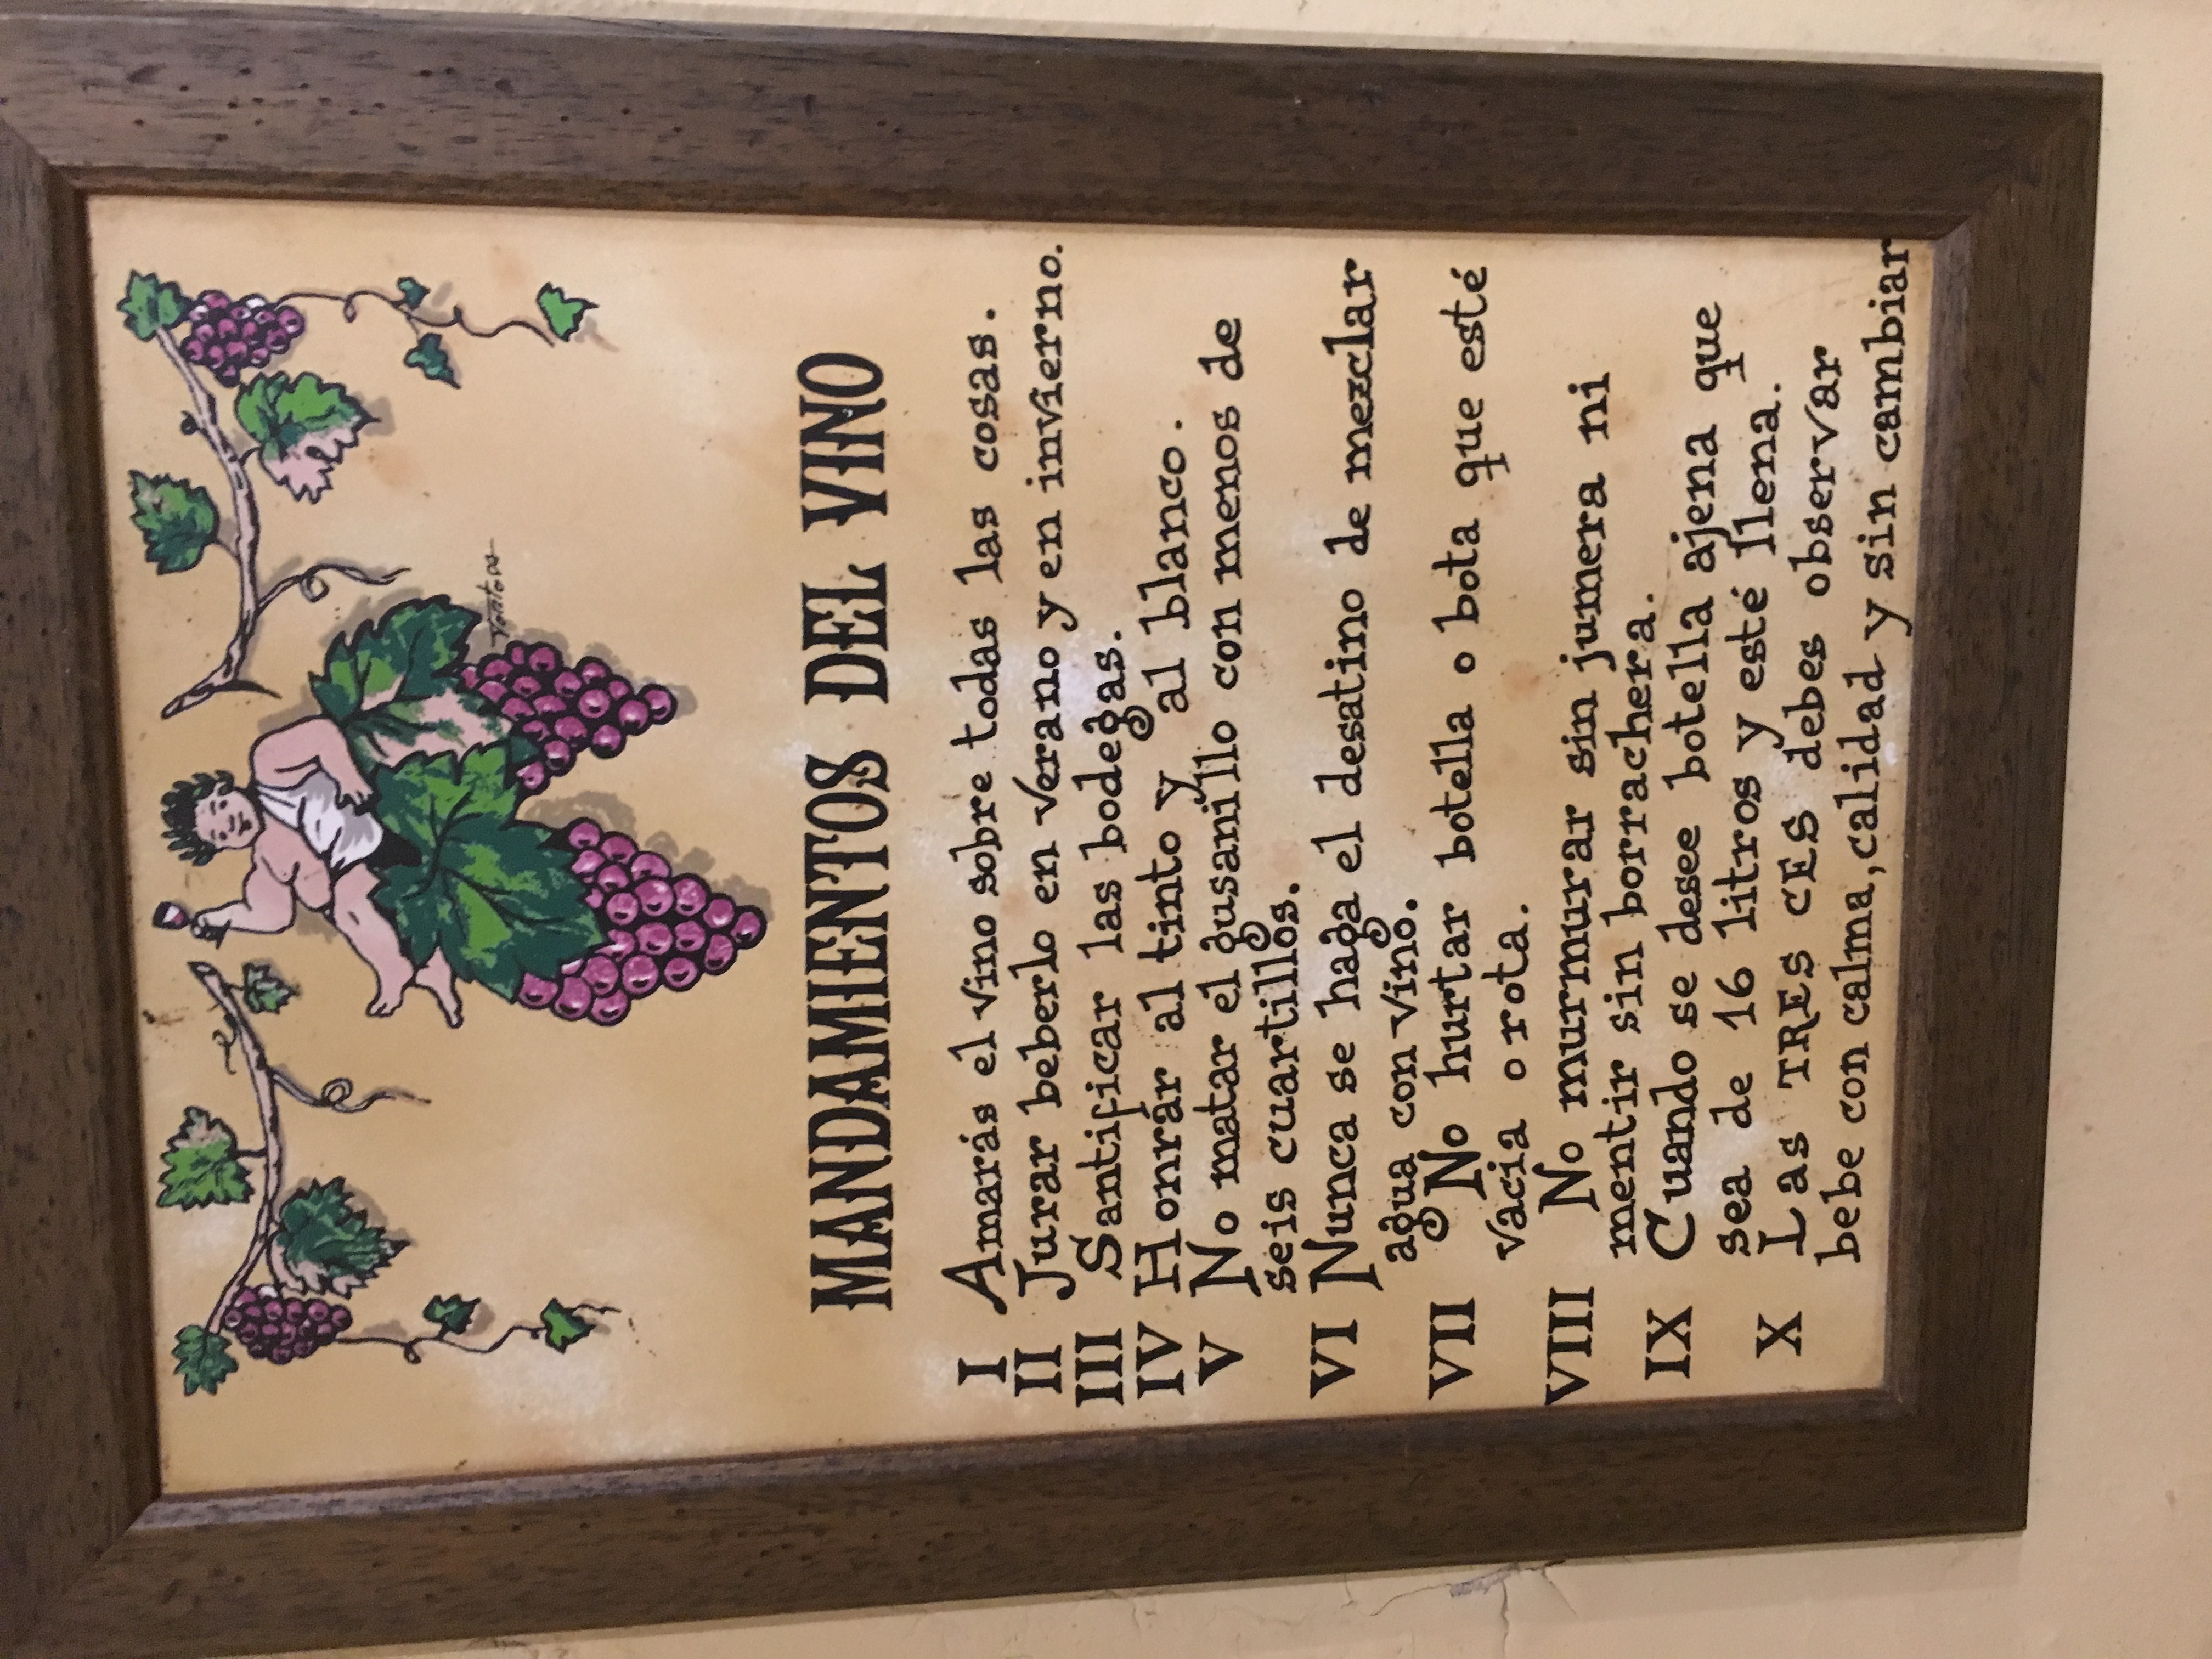 MANDAMIENTOS DEL VINO
I Amarás el vino sobre todas las cosas.
II Jurar beberlo en verano y en invierno.
III Santificar las bodegas.
IV Honrár al tinto y al blanco.
V No matar el gusanillo con menos de
seis cuartillos.
VI Nunca se haga el desatino de mezclar
agua con vino.
VII No hurtar botella o bota que esté
vacia o rota.
VIII No murmurar sin jumera ni
mentir sin borrachera.
IX Cuando se desee botella ajena que
sea de 16 litros y esté llena.
X Las TRES CES debes observar
bebe con calma, calidad y sin cambiar